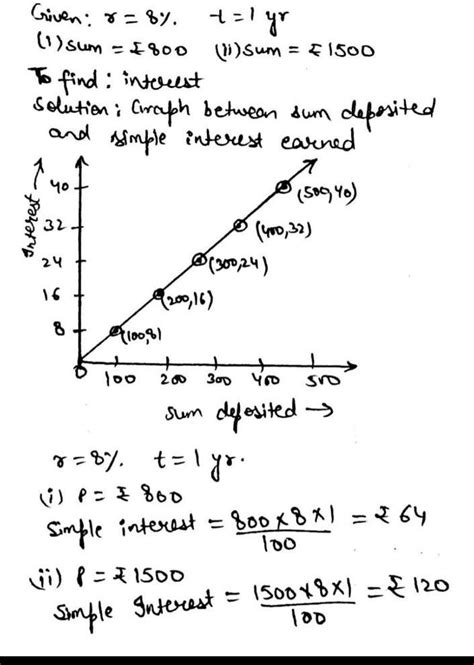 Given: r = 8%. t = 1 yr
(i) sum = ₹800 (ii) sum = ₹1500
To find: interest
Solution: Graph between sum deposited
and simple interest earned
Interest →
40
32
24
16
8
(500,40)
(400,32)
(300,24)
(200,16)
(100,8)
0 100 200 300 400 500
sum deposited →
r = 8%. t = 1 yr.
(i) P = ₹ 800
Simple interest = 800 × 8 × 1 / 100 = ₹ 64
(ii) P = ₹ 1500
Simple Interest = 1500 × 8 × 1 / 100 = ₹ 120